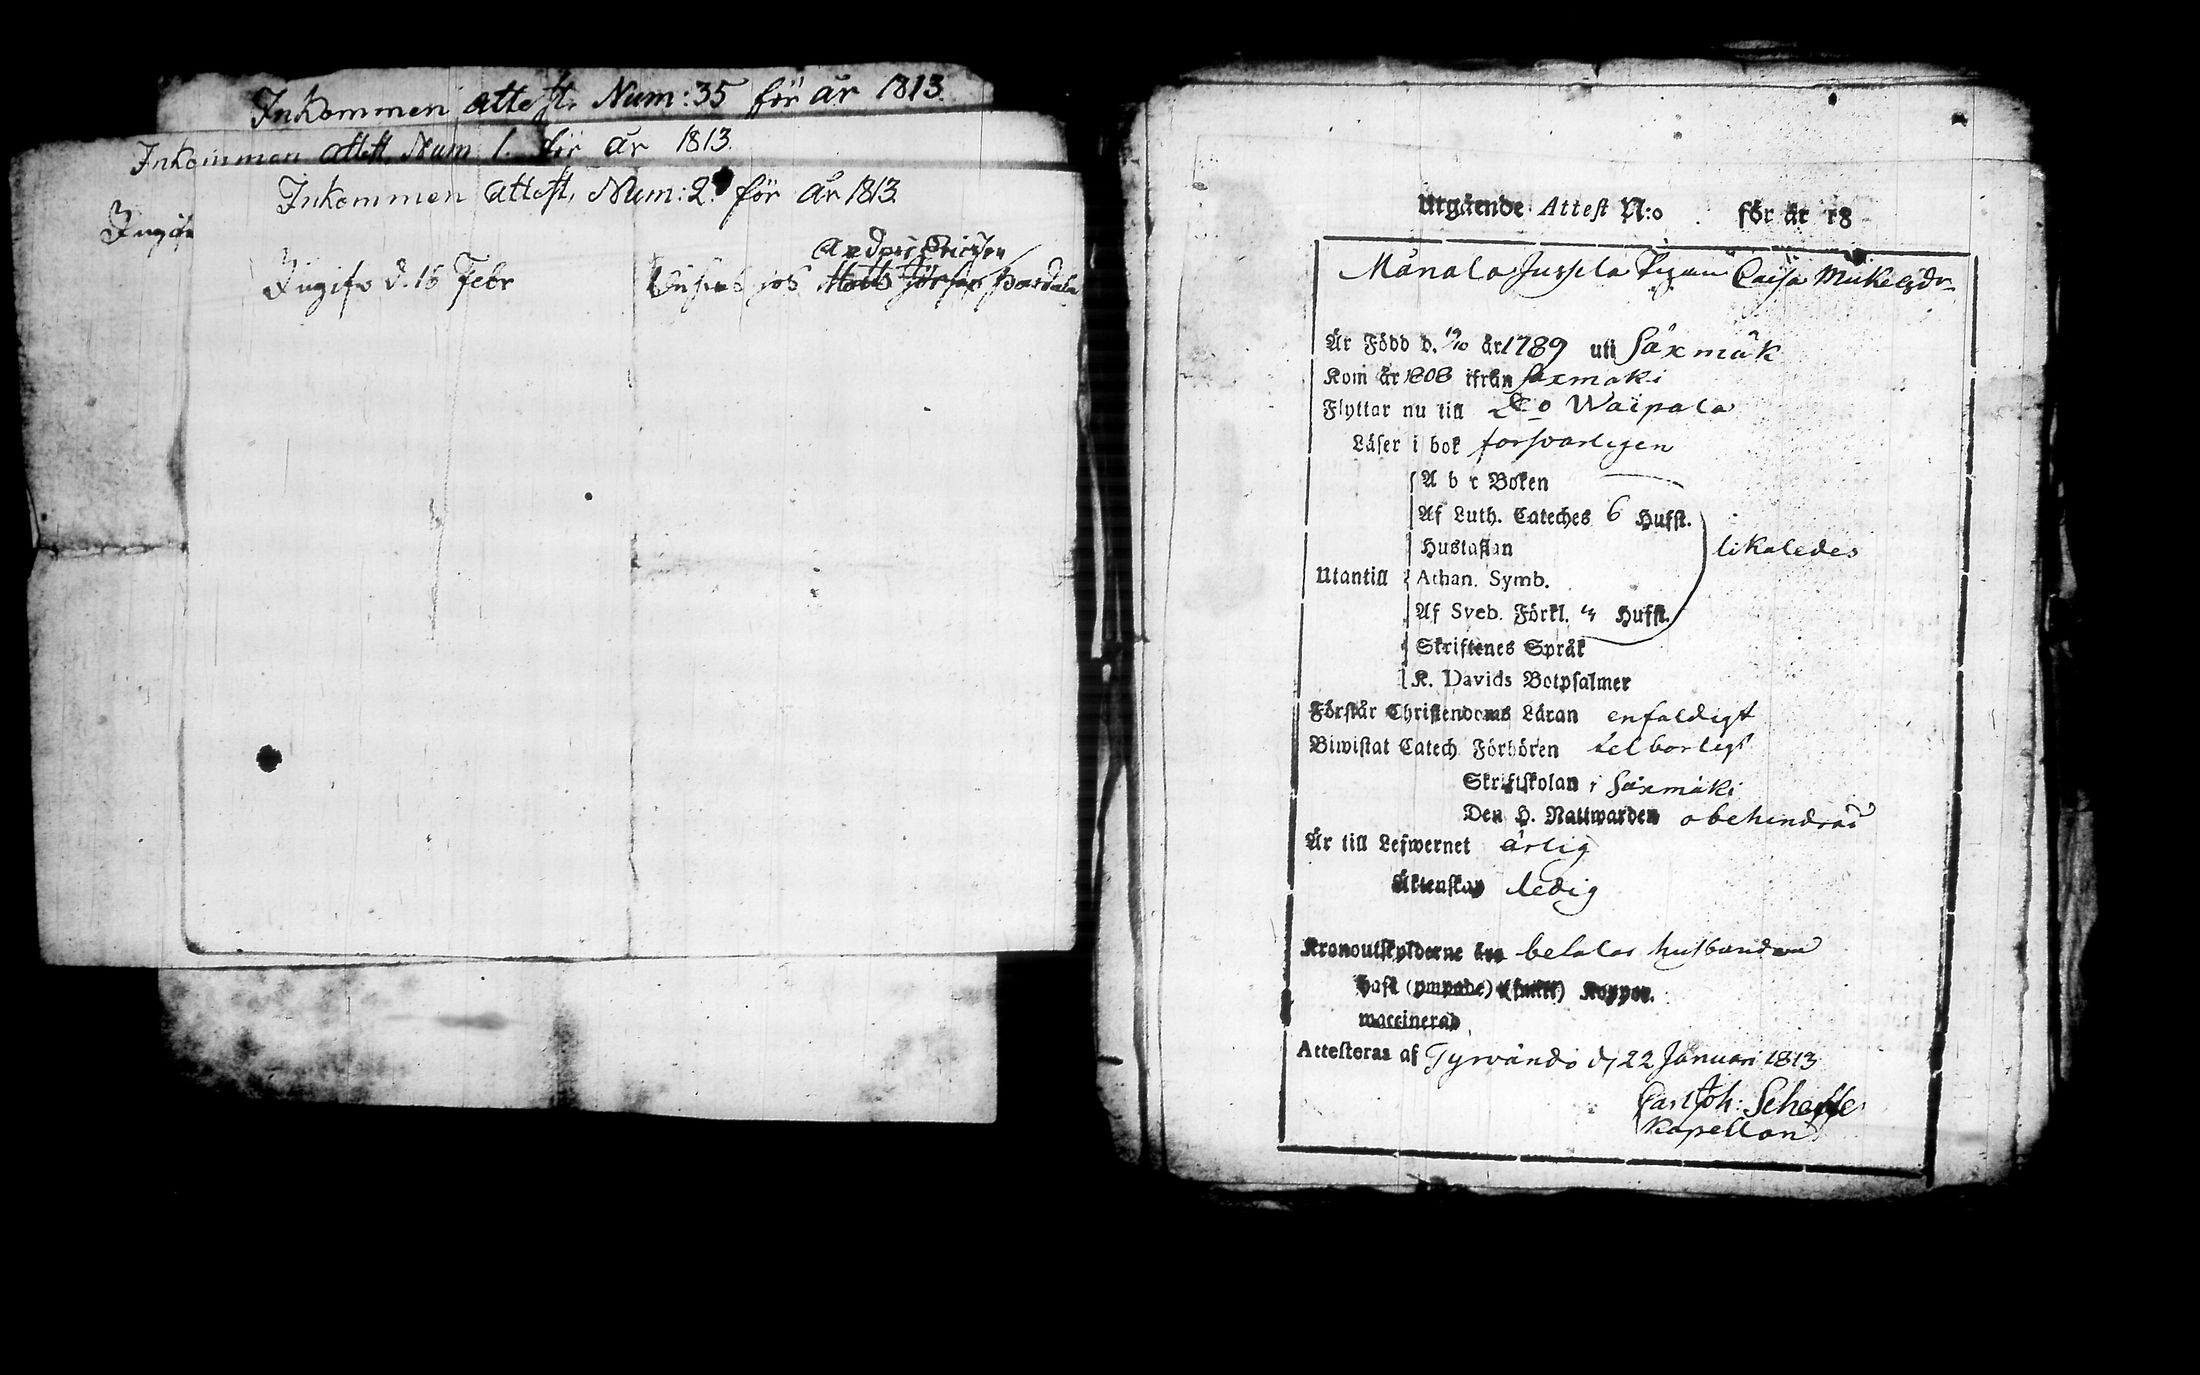 Inkommen attest, Num: 35 för år 1813.
Inkommen attest, Num 1. för år 1813.
Inkommen attest, Num: 2. för år 1813
Ingifs d. 16 Febr
Anders Ericsson
jos Matts
Utgående Attest N:o för år 18
Manala Jussila Pigan Caisa Mickelsdr
Är Född d. 19/10 år 1789 uti Säxmäk
Kom år 1808 ifrån Sexmäki
Flyttar nu till Do Waipala
Läser i bok försvarligen
A b c Boken
Af Luth. Cateches 6 Hufst.
Hustaflan
likaledes
Utantill Athan. Symb.
Af Sveb. Förkl. Hufst.
Skriftenes Språk
K. Davids Botpsalmer
Förstår Christendoms Läran enfaldigt
Biwistat Catech Förhören
Skriftskolan i Säxmäki
Den H. Nattwarden obehindrad
Är till Lefwernet ärlig
Äktenskap ledig
Kronoutskylderne betalar husbonden
Haft (ympade) Koppor.
waccinerad
Attesteras af Tyrvändö d. 22 Januari 1813
Carl Joh: Scheffer
Kapellan